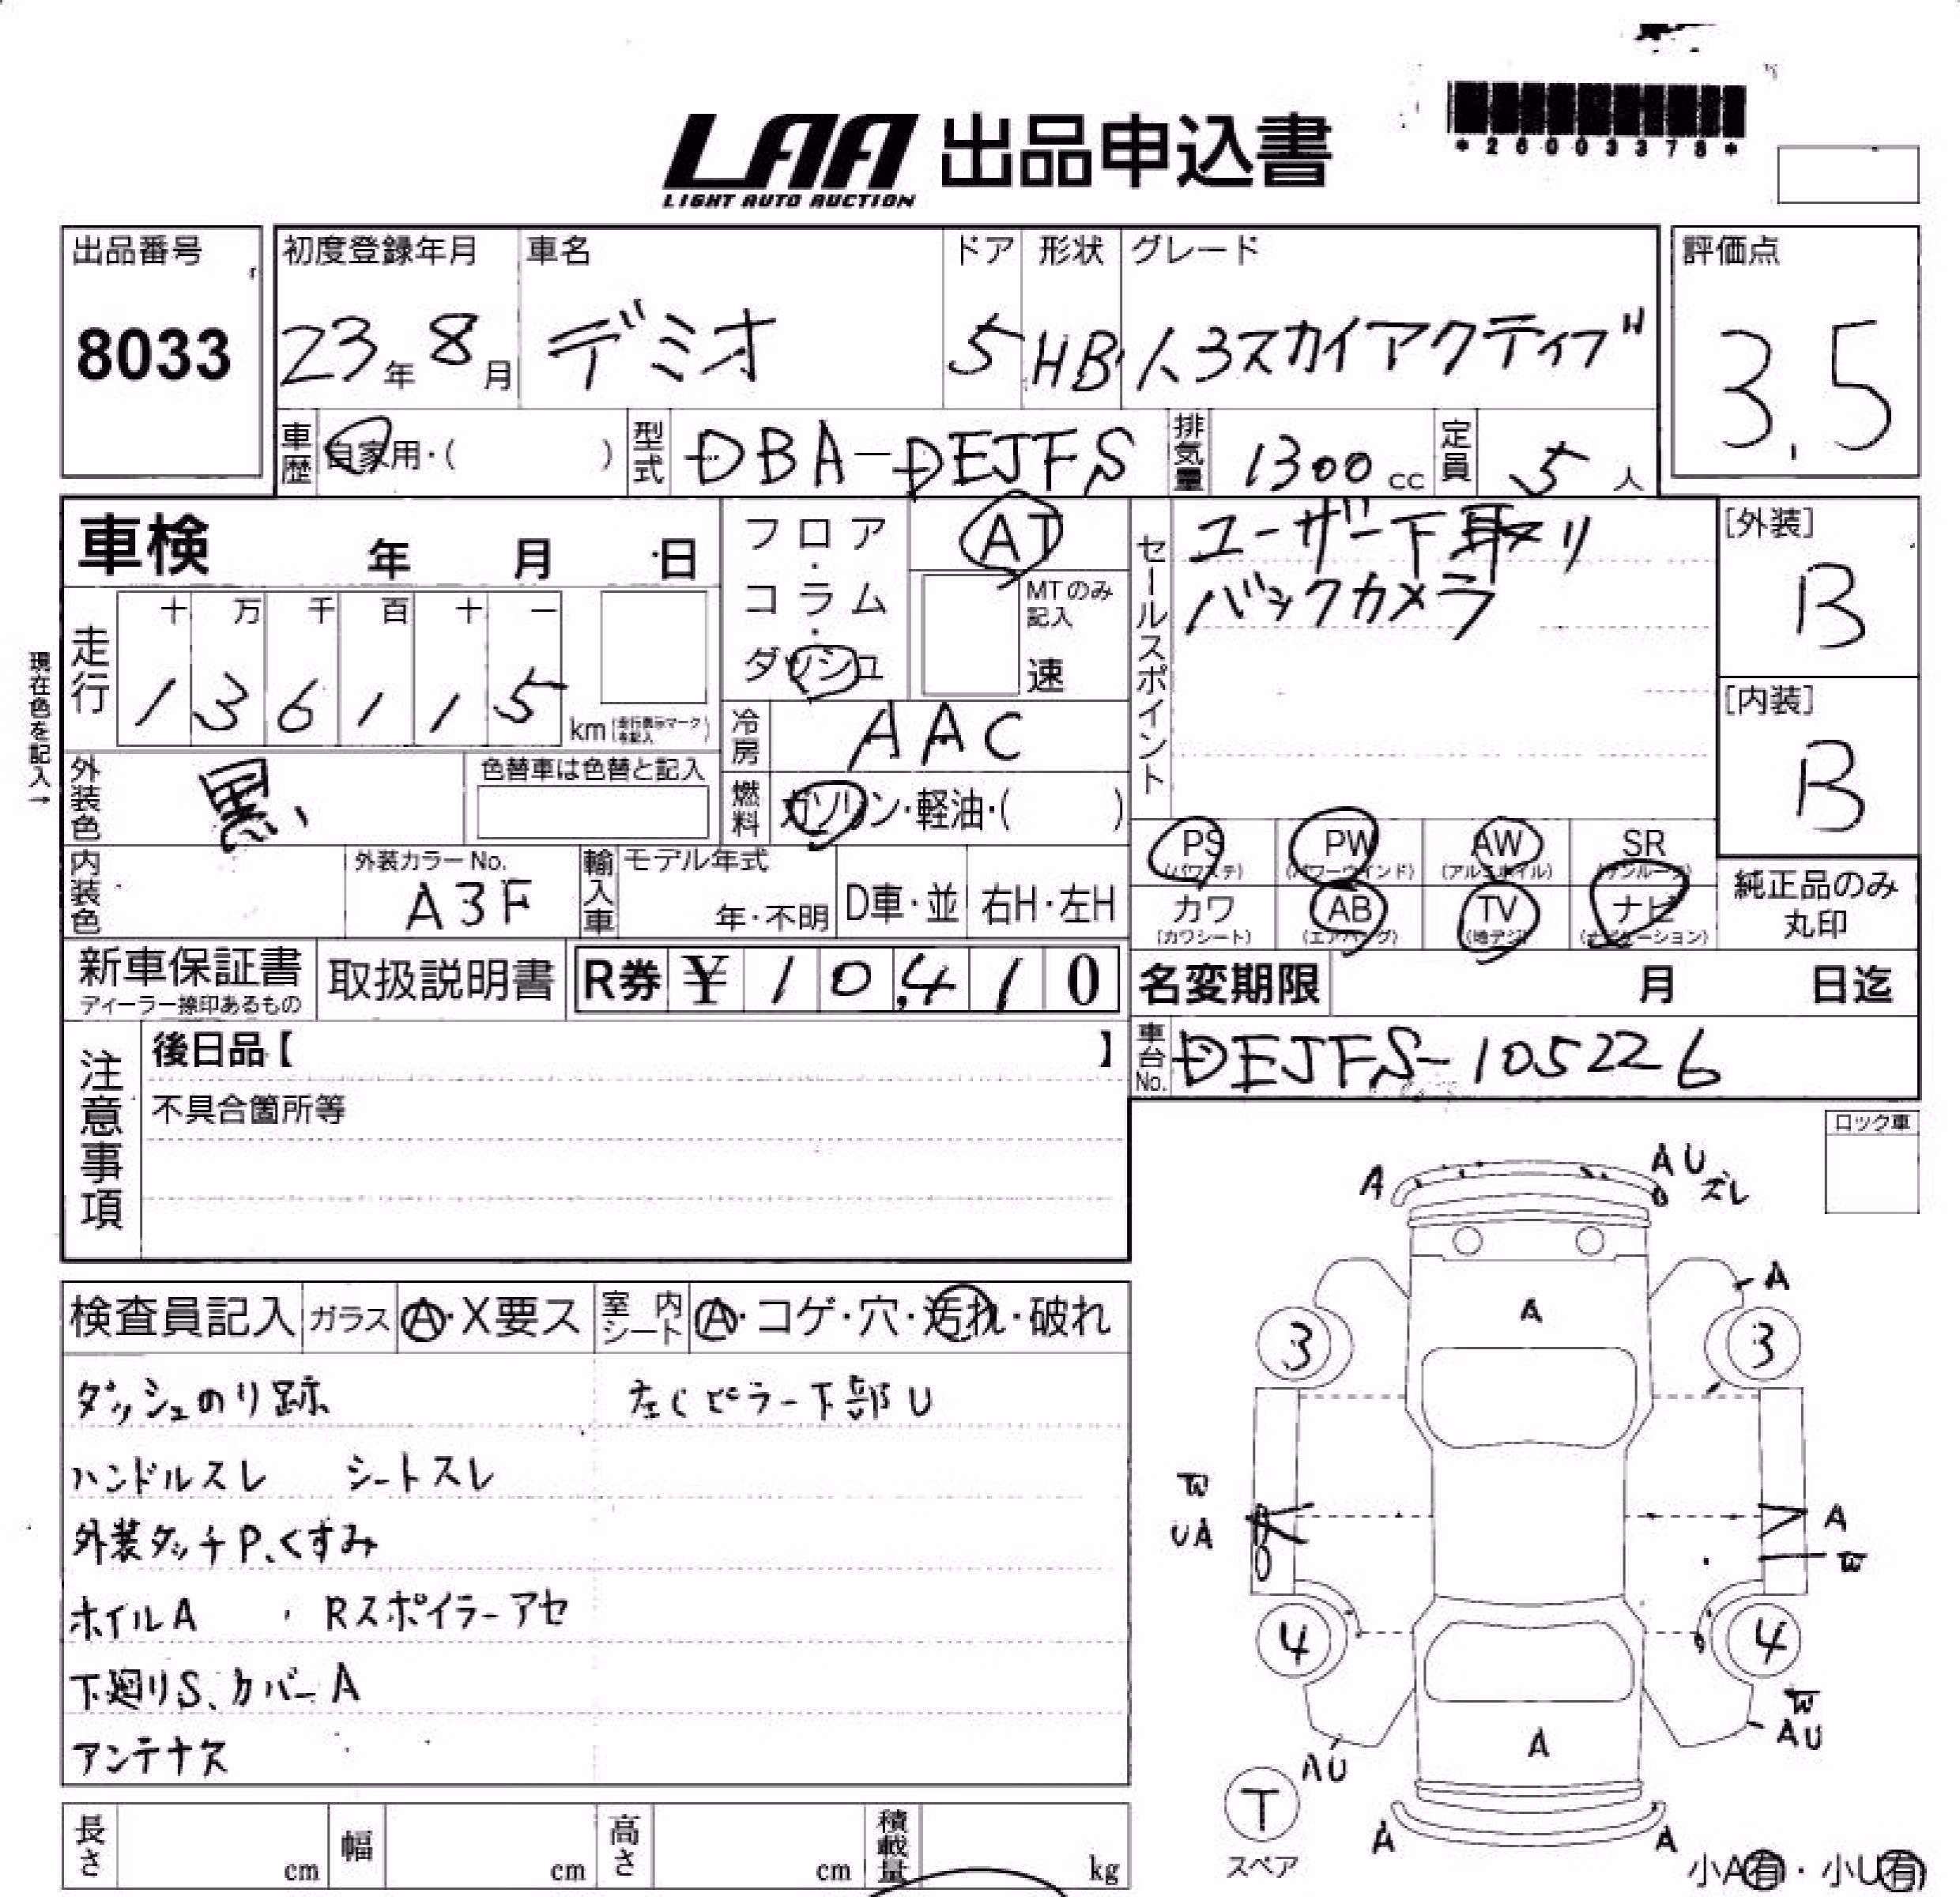 *26003378*
LAA 出品申込書
LIGHT AUTO AUCTION
出品番号 初度登録年月 車名 ドア 形状 グレード 評価点
8033 23年 8月 デミオ 5 HB 1.3スカイアクティブ 3.5
車歴 自家用・( ) 型式 DBA-DEJFS 排気量 1300cc 定員 5人
車検 年 月 日 フロア・コラム・ダッシュ AT セールスポイント ユーザー下取り [外装]
MTのみ記入 バックカメラ B
速
現在色を記入→
走行 十 万 千 百 十 一
1 3 6 1 1 5 km (走行表示マークを記入) [内装]
冷房 AAC B
外装色 黒 色替車は色替と記入 燃料 ガソリン・軽油・( )
PS (パワステ) PW (パワーウインド) AW (アルミホイル) SR (サンルーフ)
内装色 外装カラーNo. A3F 輸入車 モデル年式 年・不明 D車・並 右H・左H
カワ (カワシート) AB (エアバッグ) TV (地デジ) ナビ (ナビゲーション) 純正品のみ丸印
新車保証書 ディーラー捺印あるもの 取扱説明書 R券 ¥ 10,410 名変期限 月 日迄
車台No. DEJFS-105226
注意事項 後日品【 】
不具合箇所等
ロック車
検査員記入 ガラス A・X要ス 室内シート A・コゲ・穴・汚れ・破れ
ダッシュのり跡 左Cピラー下部U
ハンドルスレ シートスレ
外装タッチP、くすみ
ホイルA Rスポイラーアセ
下廻りS、カバーA
アンテナ欠
A AU ズレ
A
A
3 3
W
UA A
W
4 4
W
AU
AU
A
T
スペア
A A
小A有・小U有
長さ cm 幅 cm 高さ cm 積載量 kg